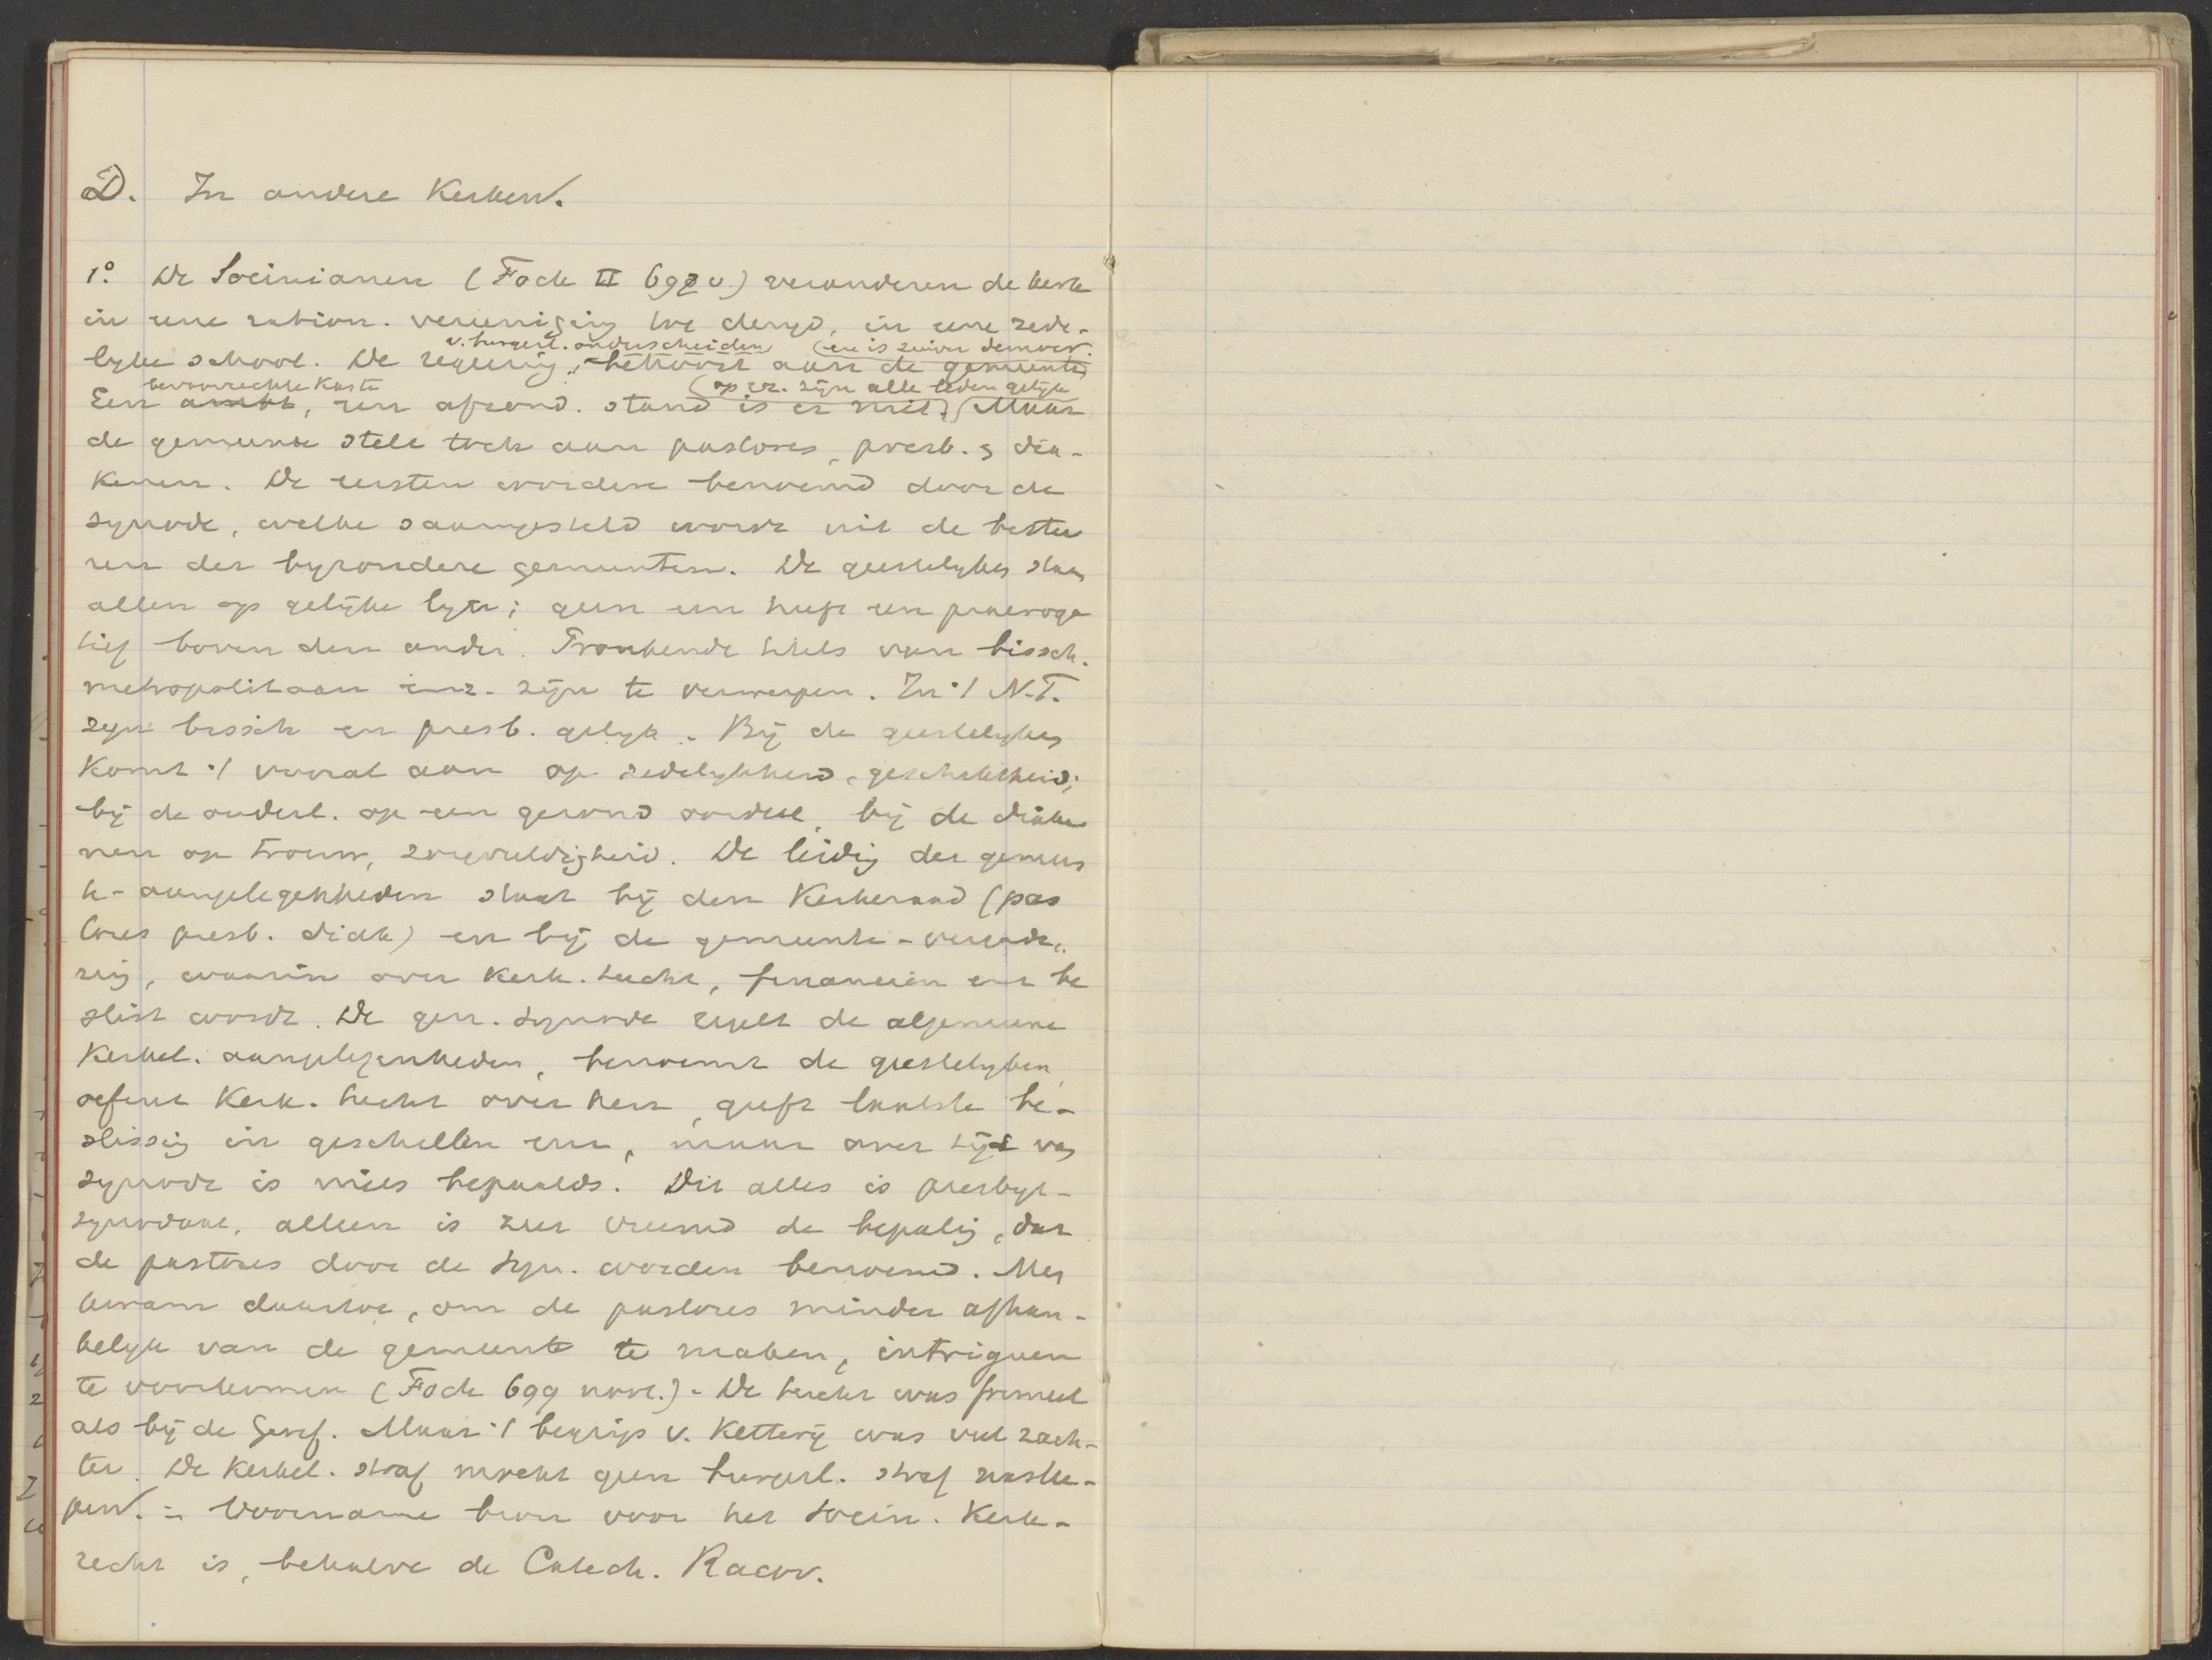 D. In andere Kerken.
1° De Socinianen (Fock II 692 v.) veranderen de kerk
in eene ration. vereeniging tot deugd, in eene zede-
v. burgerl. onderscheiden (en is zuiver democr.
lyke school. De regeering, behoort aan de gemeente
bevoorrechte Kaste (op rel. zijn alle leden gelijk
Een ambt, een afzond. stand is er niet. Maar
de gemeente stelt toch aan pastores, presb. & dia-
kenen. De eersten worden benoemd door de
synode, welke saamgesteld wordt uit de bestu
ren der byzondere gemeenten. De geestelykes staan
allen op gelijke lyn; geen een heeft een praeroga
tief boven den ander. Pronkende titels van bissch.
metropolitaan enz. zijn te verwerpen. In 't N.T.
zyn bissch en presb. gelyk. Bij de geestelykes
Komt 't vooral aan op zedelykheid, geschiktheid;
bij de ouderl. op een gezond oordeel, bij de diake
nen op trouw, zorgvuldigheid. De leidig der gemeen
te-aangelegenheden staat bij den Kerkeraad (pas
tores presb. diak) en bij de gemeente-vergade-
ring, waarin over Kerk. tucht, financien enz be
slist wordt. De gen. synode regelt de algemeene
Kerkel. aangelegenheden, benoemt de geestelyken,
oefent Kerk. tucht over hen, geeft laatste be-
slissig in geschillen enz, maar over tijd van
synode is niets bepaalds. Dit alles is presbyt-
synodaal, alleen is zeer vreemd de bepalig, dat
de pastores door de syn. worden benoemd. Men
kwam daartoe, om de pastores minder afhan-
kelyk van de gemeente te maken, intriguen
te voorkomen (Fock 699 noot.) - De tucht was formeel
als bij de Geref. Maar 't begrip v. Ketterij was veel zach-
ter. De Kerkel. straf mocht geen burgerl. straf nasle-
pen. - Voorname bron voor het Socin. Kerk-
recht is, behalve de Catech. Racov.